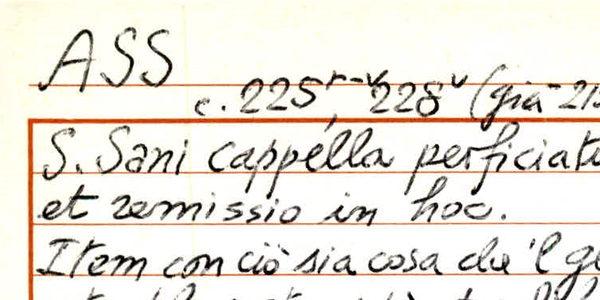 ASS
c. 225r-v, 228v (già 215
S. Sani cappella perficiatu
et remissio in hoc.
Item con ciò sia cosa che 'l ge